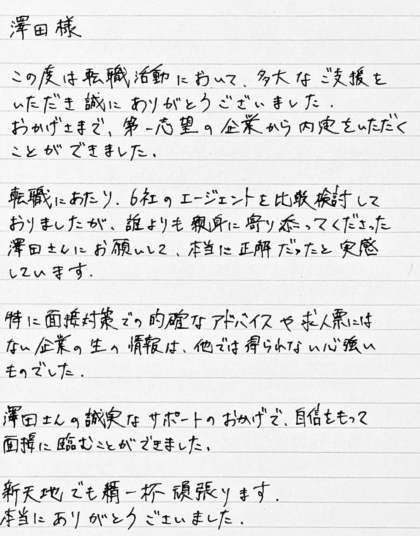 澤田様
この度は転職活動において、多大なご支援を
いただき誠にありがとうございました.
おかげさまで、第一志望の企業から内定をいただく
ことができました.
転職にあたり、6社のエージェントを比較検討して
おりましたが、誰よりも親身に寄り添ってくださった
澤田さんにお願いして、本当に正解だったと実感
しています.
特に面接対策での的確なアドバイスや求人票には
ない企業の生の情報は、他では得られない心強い
ものでした.
澤田さんの誠実なサポートのおかげで、自信をもって
面接に臨むことができました.
新天地でも精一杯頑張ります.
本当にありがとうございました.